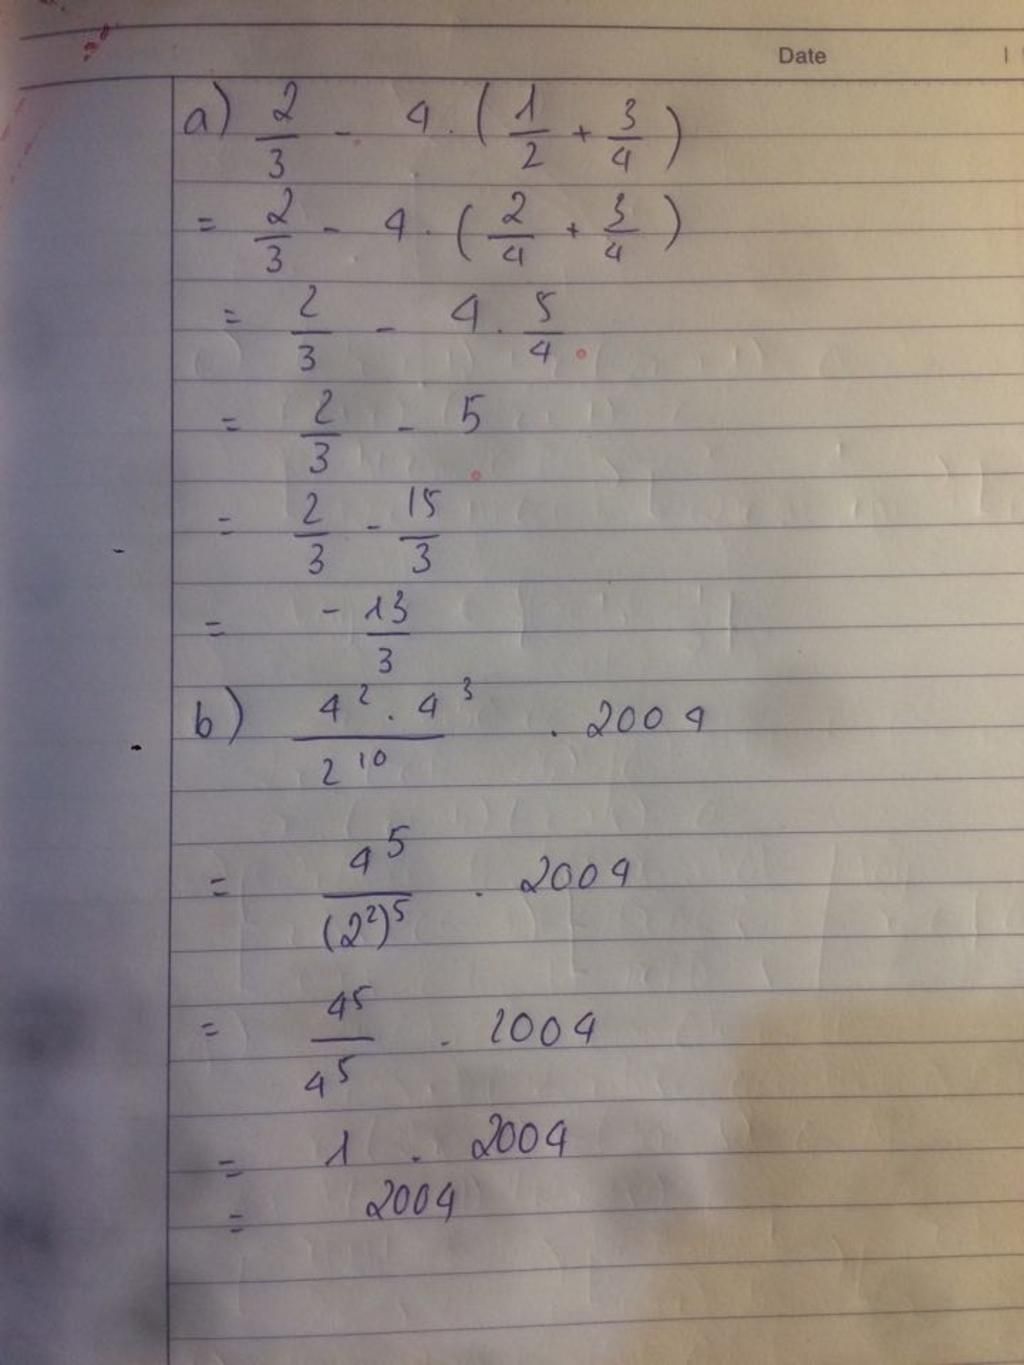 Date
a) 2/3 - 4 . ( 1/2 + 3/4 )
= 2/3 - 4 . ( 2/4 + 3/4 )
= 2/3 - 4 . 5/4
= 2/3 - 5
= 2/3 - 15/3
= - 13/3
b) 4² . 4³ / 2¹⁰ . 2004
= 4⁵ / (2²)⁵ . 2004
= 4⁵ / 4⁵ . 2004
= 1 . 2004
= 2004